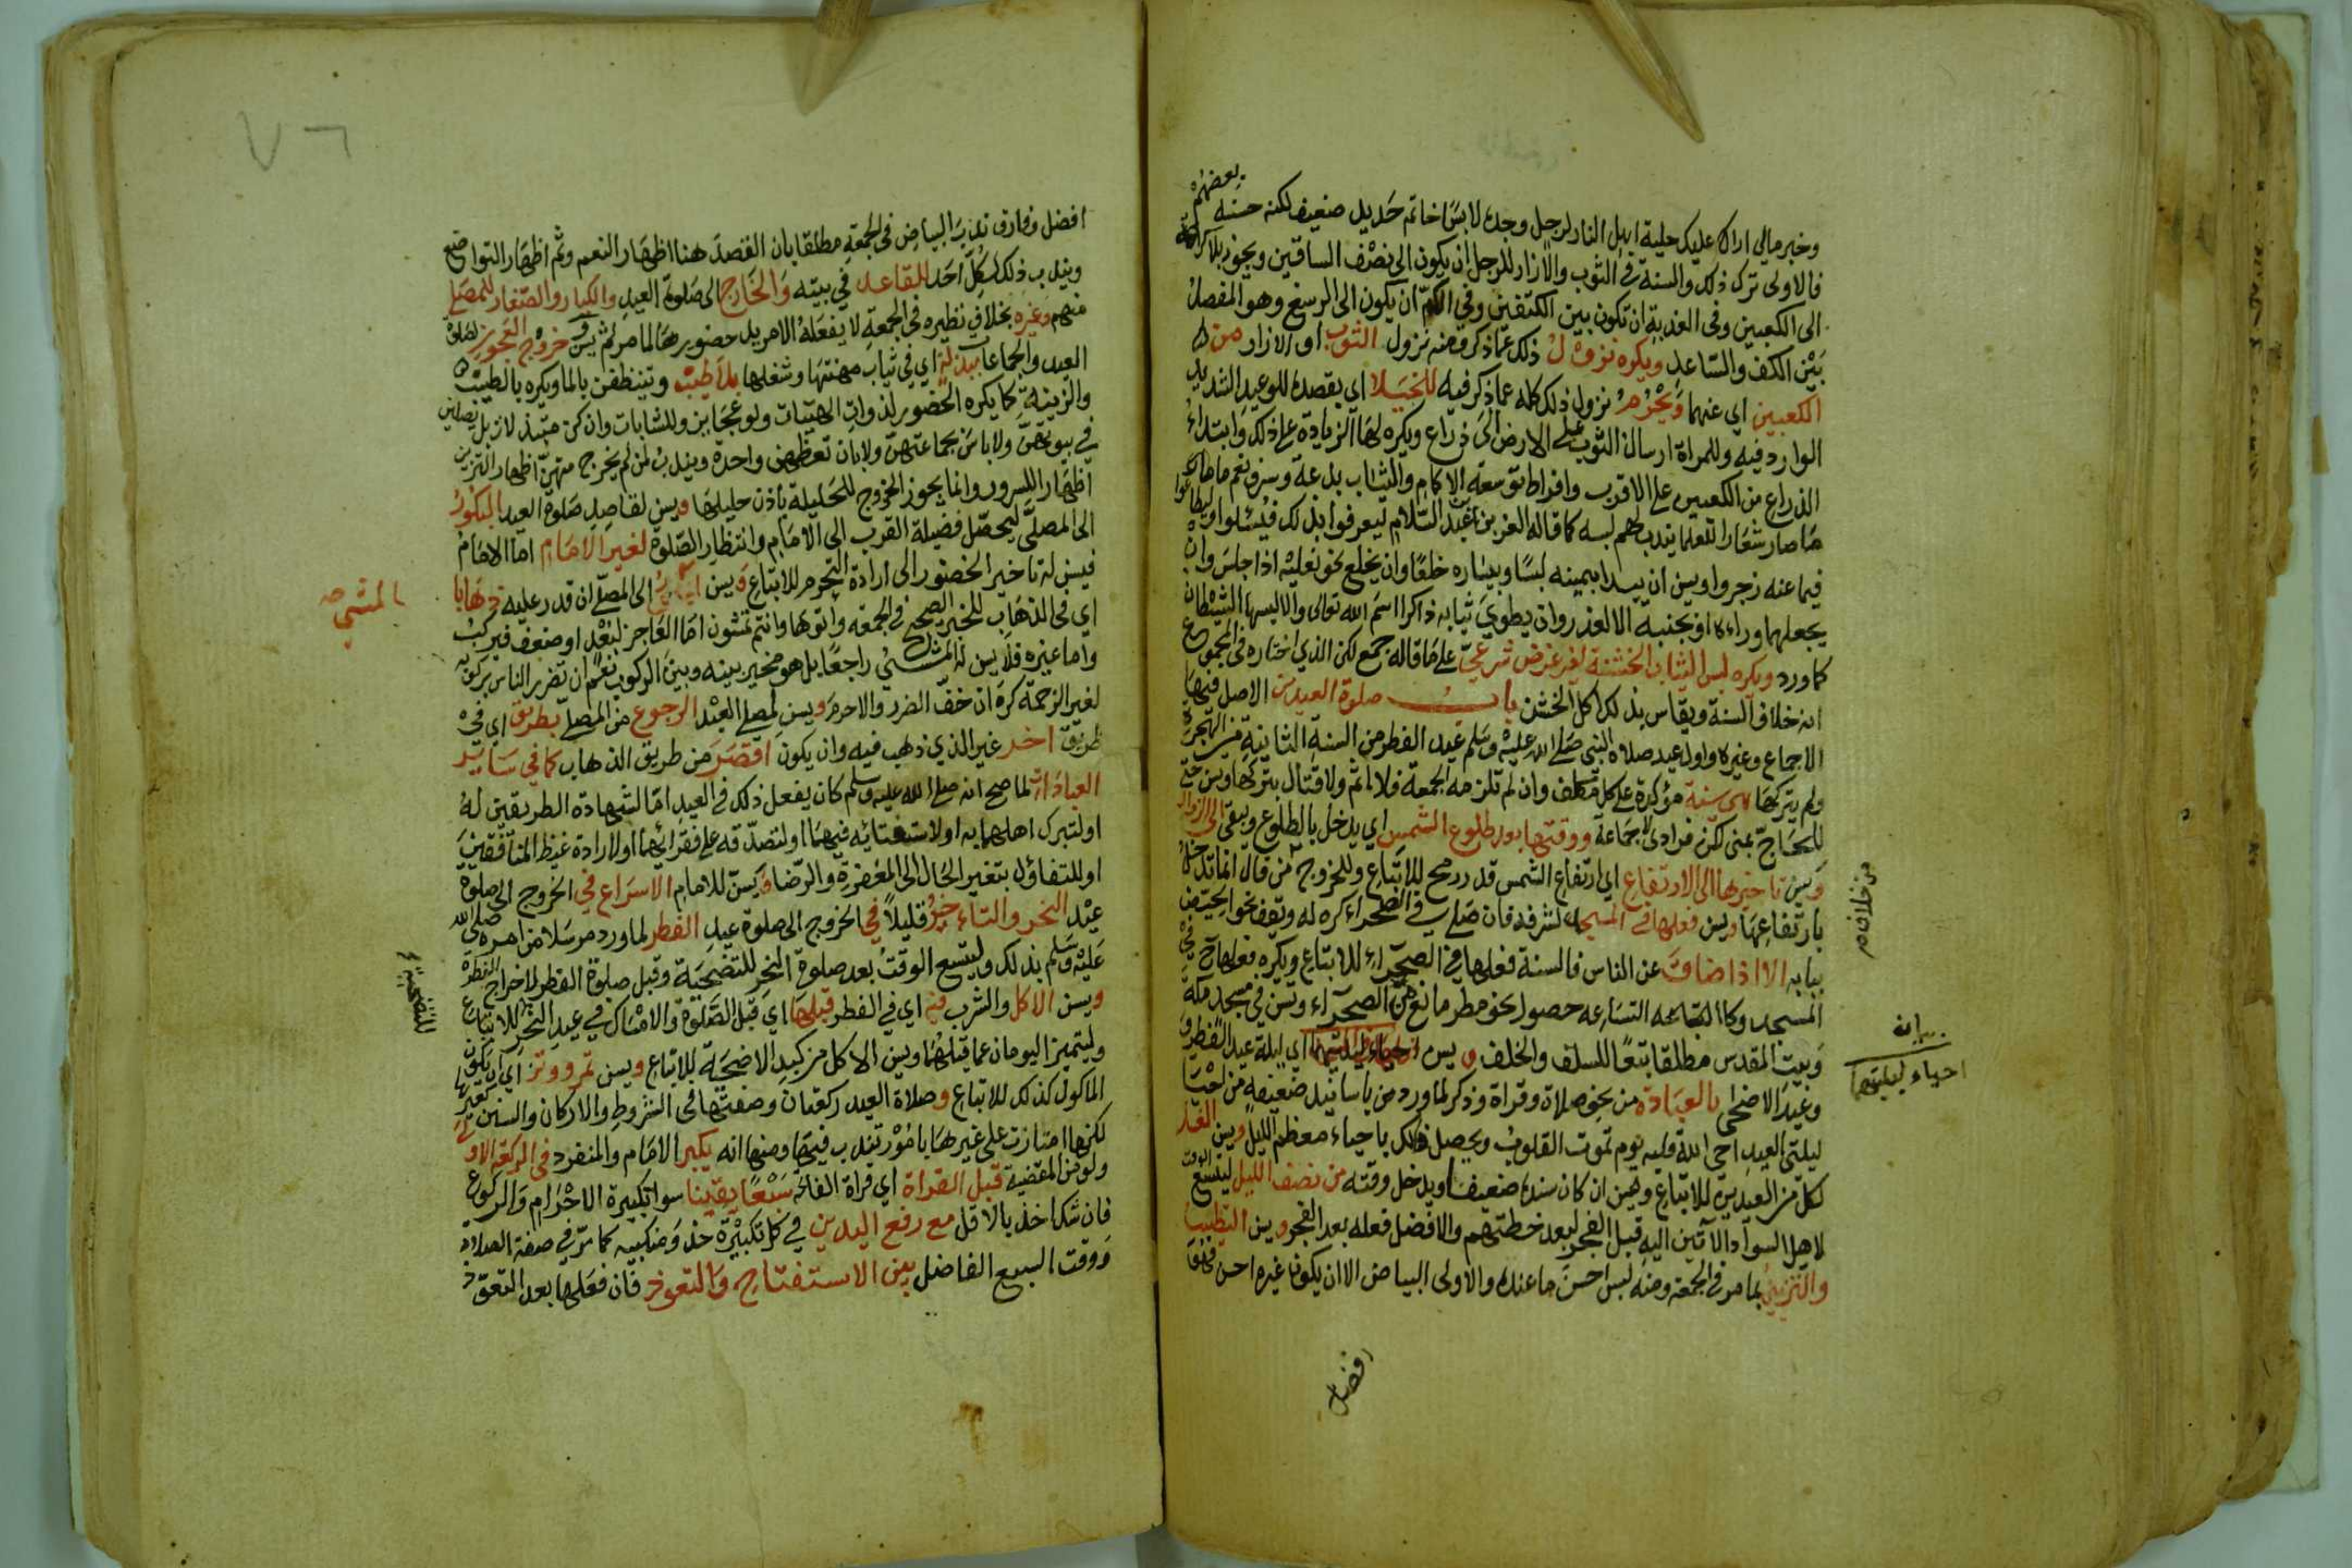 بعضهم
وخبر مالي اراك عليك حلية اهل النار لرجل وجده لابسا خاتم حديد ضعيف لكنه حسنه
فالاولى ترك ذلك والسنة في الثوب والازار للرجل ان يكون الى نصف الساقين ويجوز بلا كراهة
الى الكعبين وفي العذبة ان تكون بين الكتفين وفي الكم ان يكون الى الرسغ وهو المفصل
بين الكف والساعد ويكره نزول ذلك عما ذكر ومنه نزول الثوب او الازار من
الكعبين اي عنهما ويحرم نزول ذلك كله عما ذكر فيه للخيلا اي بقصده للوعيد الشديد
الوارد فيه وللمراة ارسال الثوب على الارض الى ذراع ويكره لها الزيادة على ذلك وابتداء
الذراع من الكعبين على الاقرب وافراط توسعة الاكمام والثياب بدعة وسرف نعم ما
صار شعارا للعلما يندب لهم لبسه كما قاله العز بن عبد السلام ليعرفوا بذلك فيسئلوا وليطاعوا
فيما عنه زجروا ويسن ان يبدا بيمينه لبسا وبيساره خلعا وان يخلع نحو نعليه اذا جلس وان
يجعلهما وراءه او بجنبه الا لعذر وان يطوي ثيابه ذاكرا اسم الله تعالى والا لبسها الشيطان
كما ورد ويكره لبس الثياب الخشنة لغير غرض شرعي على ما قاله جمع لكن الذي اختاره في المجموع
انه خلاف السنة ويقاس بذلك اكل الخشن باب صلوة العيدين الاصل فيها
الاجماع وغيره واول عيد صلاه النبي صلى الله عليه وسلم عيد الفطر من السنة الثانية من الهجرة
ولم يتركها هي سنة مؤكدة على كل مكلف وان لم تلزمه الجمعة فلا اثم ولا قتال بتركها وسن حتى
للحاج بمنى لكن فرادى لا جماعة ووقتها بعد طلوع الشمس اي يدخل بالطلوع ويبقى الى الزوال
ويسن تاخيرها الى الارتفاع اي ارتفاع الشمس قدر رمح للاتباع وللخروج من قال انما تدخل
من خلاف
بارتفاعها ويسن فعلها في المسجد لشرفه فان صلى في الصحراء كره له ويقف نحو الحيض
ببابه الا اذا ضاق عن الناس فالسنة فعلها في الصحراء للاتباع ويكره فعلها في
المسجد وكالضاعة التساعه حصول نحو مطر مانع من الصحراء وتسن في مسجد مكة
وبيت المقدس مطلقا تبعا للسلف والخلف ويسن احياء ليلتهما اي ليلة عيد الفطر و
بيان
احياء ليلتهما
وعيد الاضحى بالعبادة من نحو صلاة وقراة وذكر لما ورد من باسانيد ضعيفة من احيا
ليلتي العيد احيى الله قلبه يوم تموت القلوب ويحصل ذلك باحياء معظم الليل ويسن الغسل
لكل من العيدين للاتباع وهين ان كان سنده ضعيفا ويدخل وقته من نصف الليل ليتسع الوقت
لاهل السواد الآتين اليه قبل الفجر لبعد خطتهم والافضل فعله بعد الفجر ويسن التطيب
والتزين بما مر في الجمعة ومنه لبس احسن ما عنده والاولى البياض الا ان يكون غيره احسن فهو
افضل
٧٦
افضل وفارق ندب البياض في الجمعة مطلقا بان القصد هنا اظهار النعم وثم اظهار التواضع
ويندب ذلك لكل احد للقاعد في بيته والخارج الى صلوة العيد والكبار والصغار للمصلي
منهم وغيره بخلاف نظيره في الجمعة لا يفعله الا مريد حضورها لما مر ثم يسن خروج العجوز لصلوة
العيد والجماعات ببذلة اي في ثياب مهنتها وشغلها بلا طيب ويتنظفن بالما ويكره بالطيب
والزينة كما يكره الحضور لذوات الهيئات ولو عجايز وللشابات وان كن مبتذلات بل يصلين
في بيوتهن ولا باس بجماعتهن ولا بان تعظهن واحدة ويندب لمن لم يخرج منهن اظهار التزين
اظهارا للسرور وانما يجوز الخروج للحليلة باذن حليلها ويسن لقاصد صلوة العيد البكور
الى المصلى ليحصل فضيلة القرب الى الامام وانتظار الصلوة لغير الامام اما الامام
فيسن له تاخير الحضور الى ارادة التحرم للاتباع ويسن الى المصلى ان قدر عليه ذهابا
المشي صح
اي في الذهاب للخبر الصحيح في الجمعة واتوها وانتم تمشون اما العاجز لبعد او ضعف فيركب
واما غيره فلا يسن له المشي راجعا بل هو مخير بينه وبين الركوب نعم ان تضرر الناس بركوبه
لغير الزحمة كره ان خف الضرر والا حرم ويسن لمصلي العيد الرجوع من المصلى بطريق اي في
طريق اخر غير الذي ذهب فيه وان يكون اقصر من طريق الذهاب كما في ساير
العبادات لما صح انه صلى الله عليه وسلم كان يفعل ذلك في العيد اما لشهادة الطريقين له
او لتبرك اهلهما به او لاستفتائه فيهما او لتصدقه على فقرائهما او لارادة غيظ المنافقين
او للتفاؤل بتغير الحال الى المغفرة والرضا ويسن للامام الاسراع في الخروج الى صلوة
عيد النحر والتاخير قليلا في الخروج الى صلوة عيد الفطر لما ورد مرسلا من امره صلى الله
عليه وسلم بذلك وليتسع الوقت بعد صلوة النحر للتضحية وقبل صلوة الفطر لاخراج الفطرة
للتضحية
ويسن الاكل والشرب فيه اي في الفطر قبلها اي قبل الصلوة والامساك في عيد النحر للاتباع
وليتميز اليومان عما قبلهما ويسن الاكل من كبد الاضحية للاتباع ويسن تمر ووتر اي ان يكون
الماكول كذلك للاتباع وصلاة العيد ركعتان وصفتها في الشروط والاركان والسنن كغيرها
لكنها امتازت على غيرها بامور تندب فيها ومنها انه يكبر الامام والمنفرد في الركعة الاولى
ولو من المقضية قبل القراة اي قراة الفاتحة سبعا يقينا سوا تكبيرة الاحرام والركوع
فان شك اخذ بالاقل مع رفع اليدين في كل تكبيرة حذو منكبيه كما مر في صفة الصلاة
ووقت السبع الفاضل بين الاستفتاح والتعوذ فان فعلها بعد التعوذ